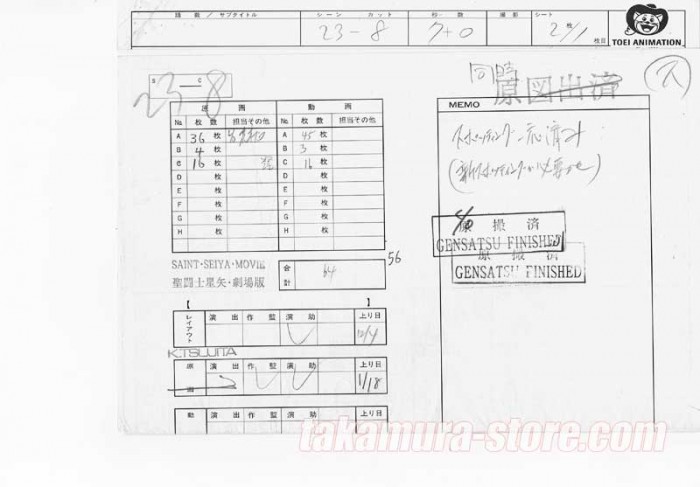 題 動 / サブタイトル シーン カット 秒・数 撮影 シート
23-8 7+0 2枚/1枚目
TOEI ANIMATION
同時
原図出済
23-8
原画 動画
No. 枚数 担当その他 No. 枚数 担当その他
A 36枚 A 45枚
B 4枚 B 3枚
C 16枚 C 16枚
D 枚 D 枚
E 枚 E 枚
F 枚 F 枚
G 枚 G 枚
H 枚 H 枚
56
SAINT・SEIYA・MOVIE
聖闘士星矢・劇場版
合計 64
レイアウト 演出 作監 演助 上り日
K.TSUJITA
原画 演出 作監 演助 上り日
1/18
動 演出 作監 演助 上り日
MEMO
原撮済
GENSATSU FINISHED
原撮済
GENSATSU FINISHED
takamura-store.com